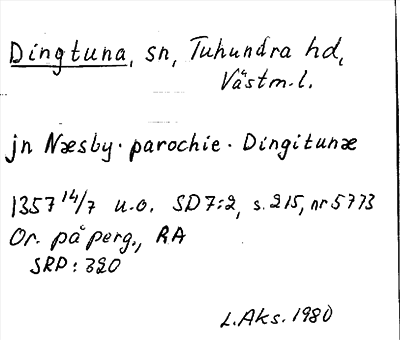 Dingtuna, sn, Tuhundra hd,
Västm.l.
jn Næsby · parochie · Dingitunæ
1357 14/7 u.o. SD 7:2, s. 215, nr 5773
Or. på perg., RA
SRP: 320
L. Aks. 1980